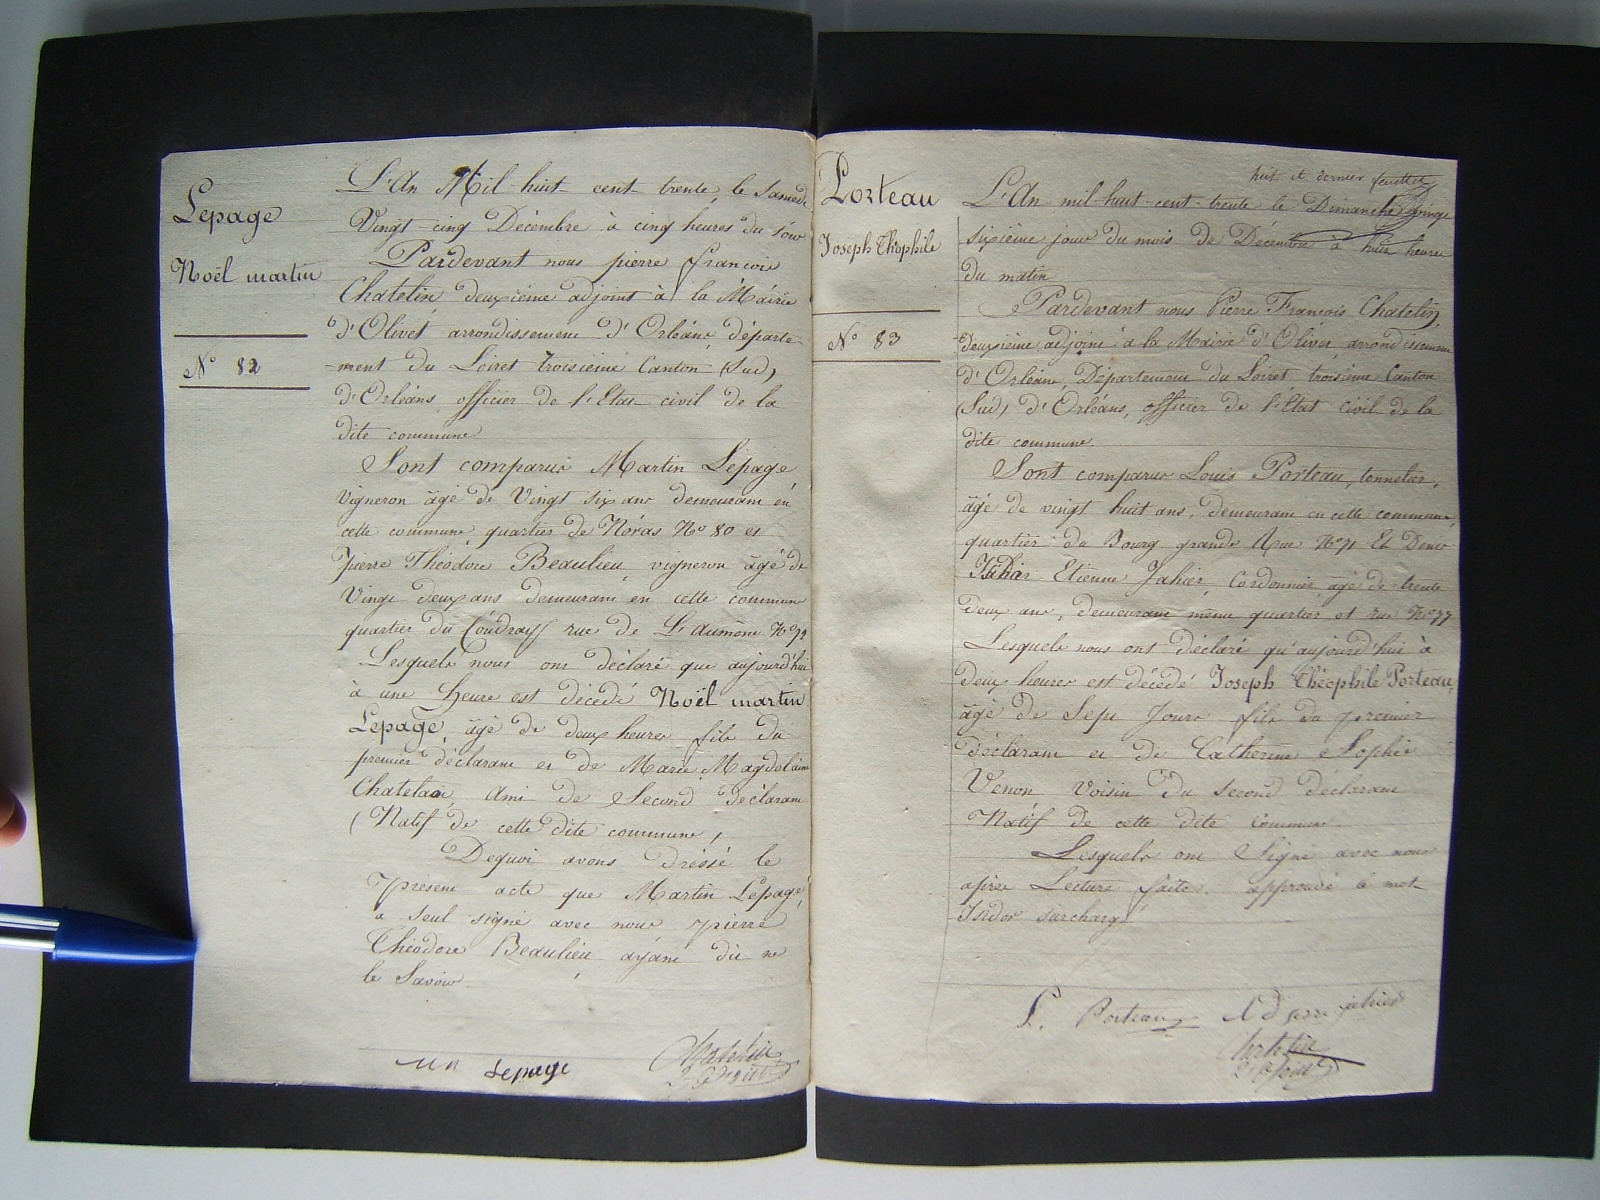 Lepage
Noël martin
N° 82
L'An Mil huit cent trente, le Samedi
Vingt-cinq Décembre à cinq heures du soir
Pardevant nous pierre françois
Chatelin deuxième adjoint à la Mairie
d'Olivet arrondissement d'Orléans, départe-
-ment du Loiret troisième Canton (Sud)
d'Orléans officier de l'Etat civil de la
dite commune
Sont comparus Martin Lepage
vigneron âgé de Vingt six ans demeurant en
cette commune, quartier de Noras N° 80 et
pierre Théodore Beaulieu vigneron âgé de
Vingt deux ans demeurant en cette commune
quartier du Coudray rue de L'aumône N°
Lesquels nous ont déclaré que aujourd'hui
à une heure est décédé Noël martin
Lepage, âgé de deux heures fils du
premier déclarant et de Marie Magdelaine
Ami de Second déclarant
(Natif de cette dite commune)
Dequoi avons dressé le
present acte que Martin Lepage
a seul signé avec nous pierre
Théodore Beaulieu ayant dit ne
le Savoir.
Lepage Chatelin
Porteau
Joseph Théophile
N° 83
huit et dernier feuillet
L'An mil-huit-cent-trente le Dimanche vingt
sixième jour du mois de Décembre à huit heures
du matin
Pardevant nous Pierre François Chatelin,
deuxième adjoint à la Mairie d'Olivet arrondissement
d'Orléans, Département du Loiret troisième Canton
(Sud) d'Orléans, officier de l'Etat civil de la
dite commune.
Sont comparus Louis Porteau, tonnelier,
âgé de vingt huit ans, demeurant en cette commune,
quartier du Bourg grande Rue N° 71 Et Denis
Etienne Jahier, Cordonnier, âgé de trente
deux ans, demeurant même quartier et rue N° 77
Lesquels nous ont déclaré qu'aujourd'hui à
deux heures est décédé Joseph Théophile Porteau,
âgé de Sept Jours fils du premier
déclarant et de Catherine Sophie
Venon Voisin du second déclarant
Natif de cette dite commune.
Lesquels ont Signé avec nous
après Lecture faite. approuvé le mot
Isidor surchargé
L. Porteau
Chatelin